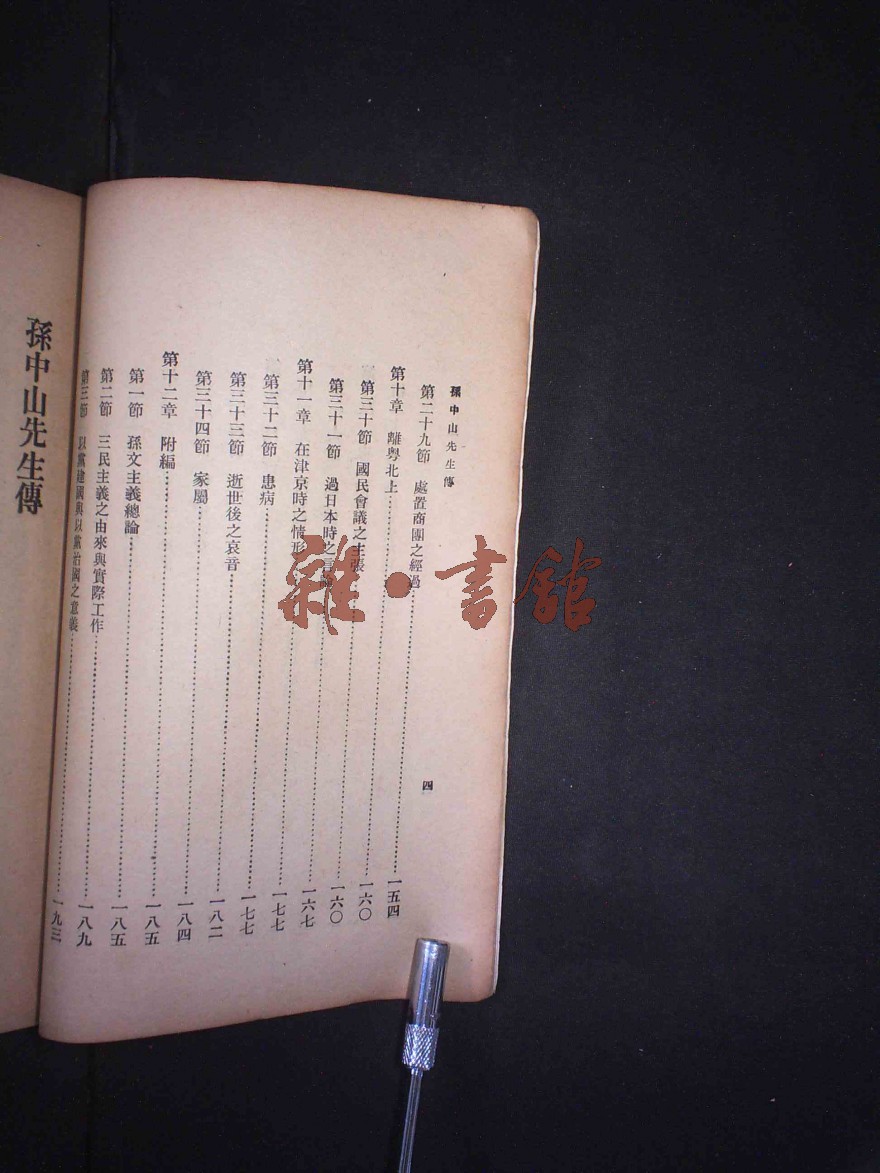 孫中山先生傳
四
第二十九節 處置商團之經過……一五四
第十章 離粵北上……一六〇
第三十節 國民會議之主張……一六〇
第三十一節 過日本時之言論……一六七
第十一章 在津京時之情形……一七七
第三十二節 患病……一七七
第三十三節 逝世後之哀音……一八二
第三十四節 家屬……一八四
第十二章 附編……一八五
第一節 孫文主義總論……一八五
第二節 三民主義之由來與實際工作……一八九
第三節 以黨建國與以黨治國之意義……一九三
孫中山先生傳
雜·書館